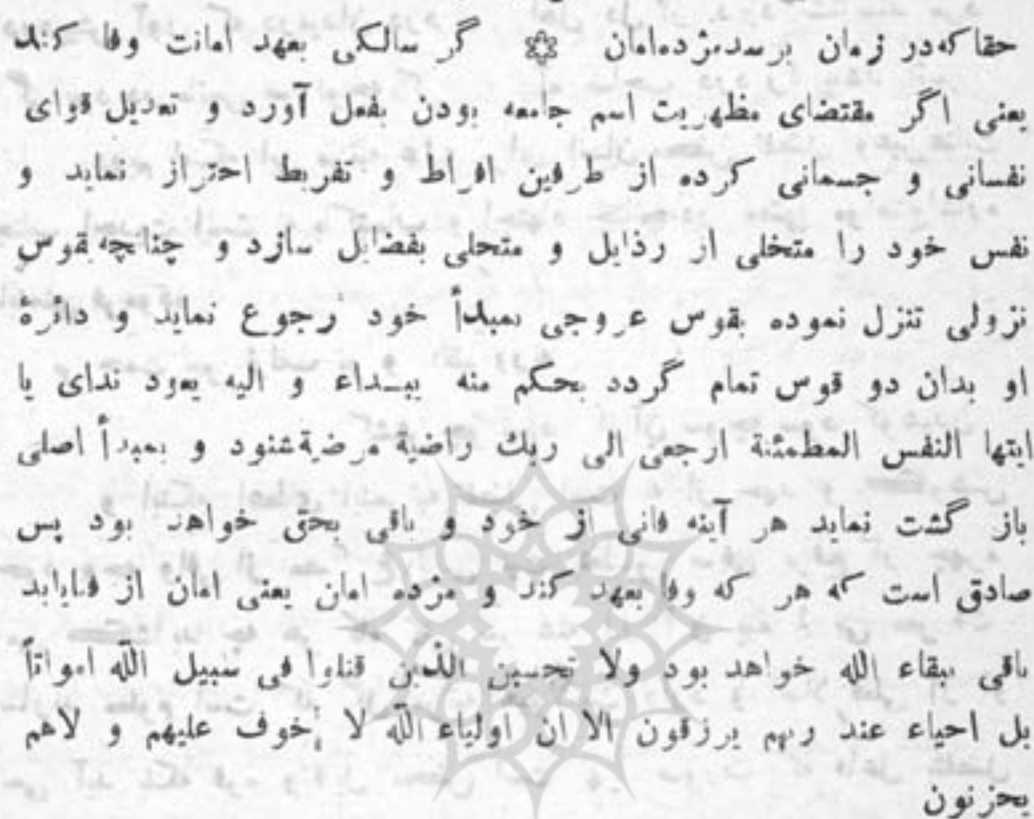 حقا که در زمان برسد مژده امان ❊ گر سالکی بعهد امانت وفا کند
یعنی اگر مقتضای مظهریت اسم جامعه بودن بفعل آورد و تعدیل قوای
نفسانی و جسمانی کرده از طرفین افراط و تفریط احتراز نماید و
نفس خود را متخلی از رذایل و متحلی بفضایل سازد و چنانچه بقوس
نزولی تنزل نموده بقوس عروجی بمبدأ خود رجوع نماید و دائرۀ
او بدان دو قوس تمام گردد بحکم منه یبـداء و الیه یعود ندای یا
ایتها النفس المطمئنة ارجعی الی ربك راضیة مرضیة شنود و بمبدأ اصلی
باز گشت نماید هر آینه فانی از خود و باقی بحق خواهد بود پس
صادق است که هر که وفا بعهد کند و مژده امان یعنی امان از فنایابد
باقی ببقاء الله خواهد بود ولا تحسبن الذین قتلوا فی سبیل الله امواتاً
بل احیاء عند ربهم یرزقون الا ان اولیاء الله لا خوف علیهم و لاهم
یحزنون